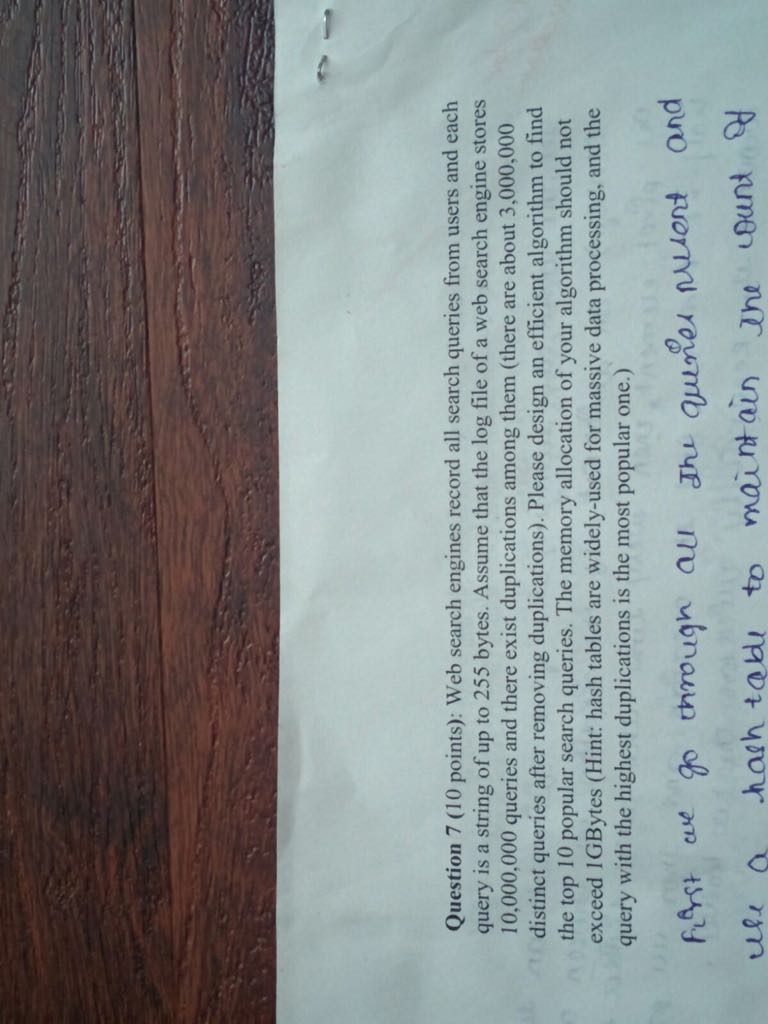 Question 7 (10 points): Web search engines record all search queries from users and each
query is a string of up to 255 bytes. Assume that the log file of a web search engine stores
10,000,000 queries and there exist duplications among them (there are about 3,000,000
distinct queries after removing duplications). Please design an efficient algorithm to find
the top 10 popular search queries. The memory allocation of your algorithm should not
exceed 1GBytes (Hint: hash tables are widely-used for massive data processing, and the
query with the highest duplications is the most popular one.)
First we go through all the queries present and
use a hash table to maintain the count of